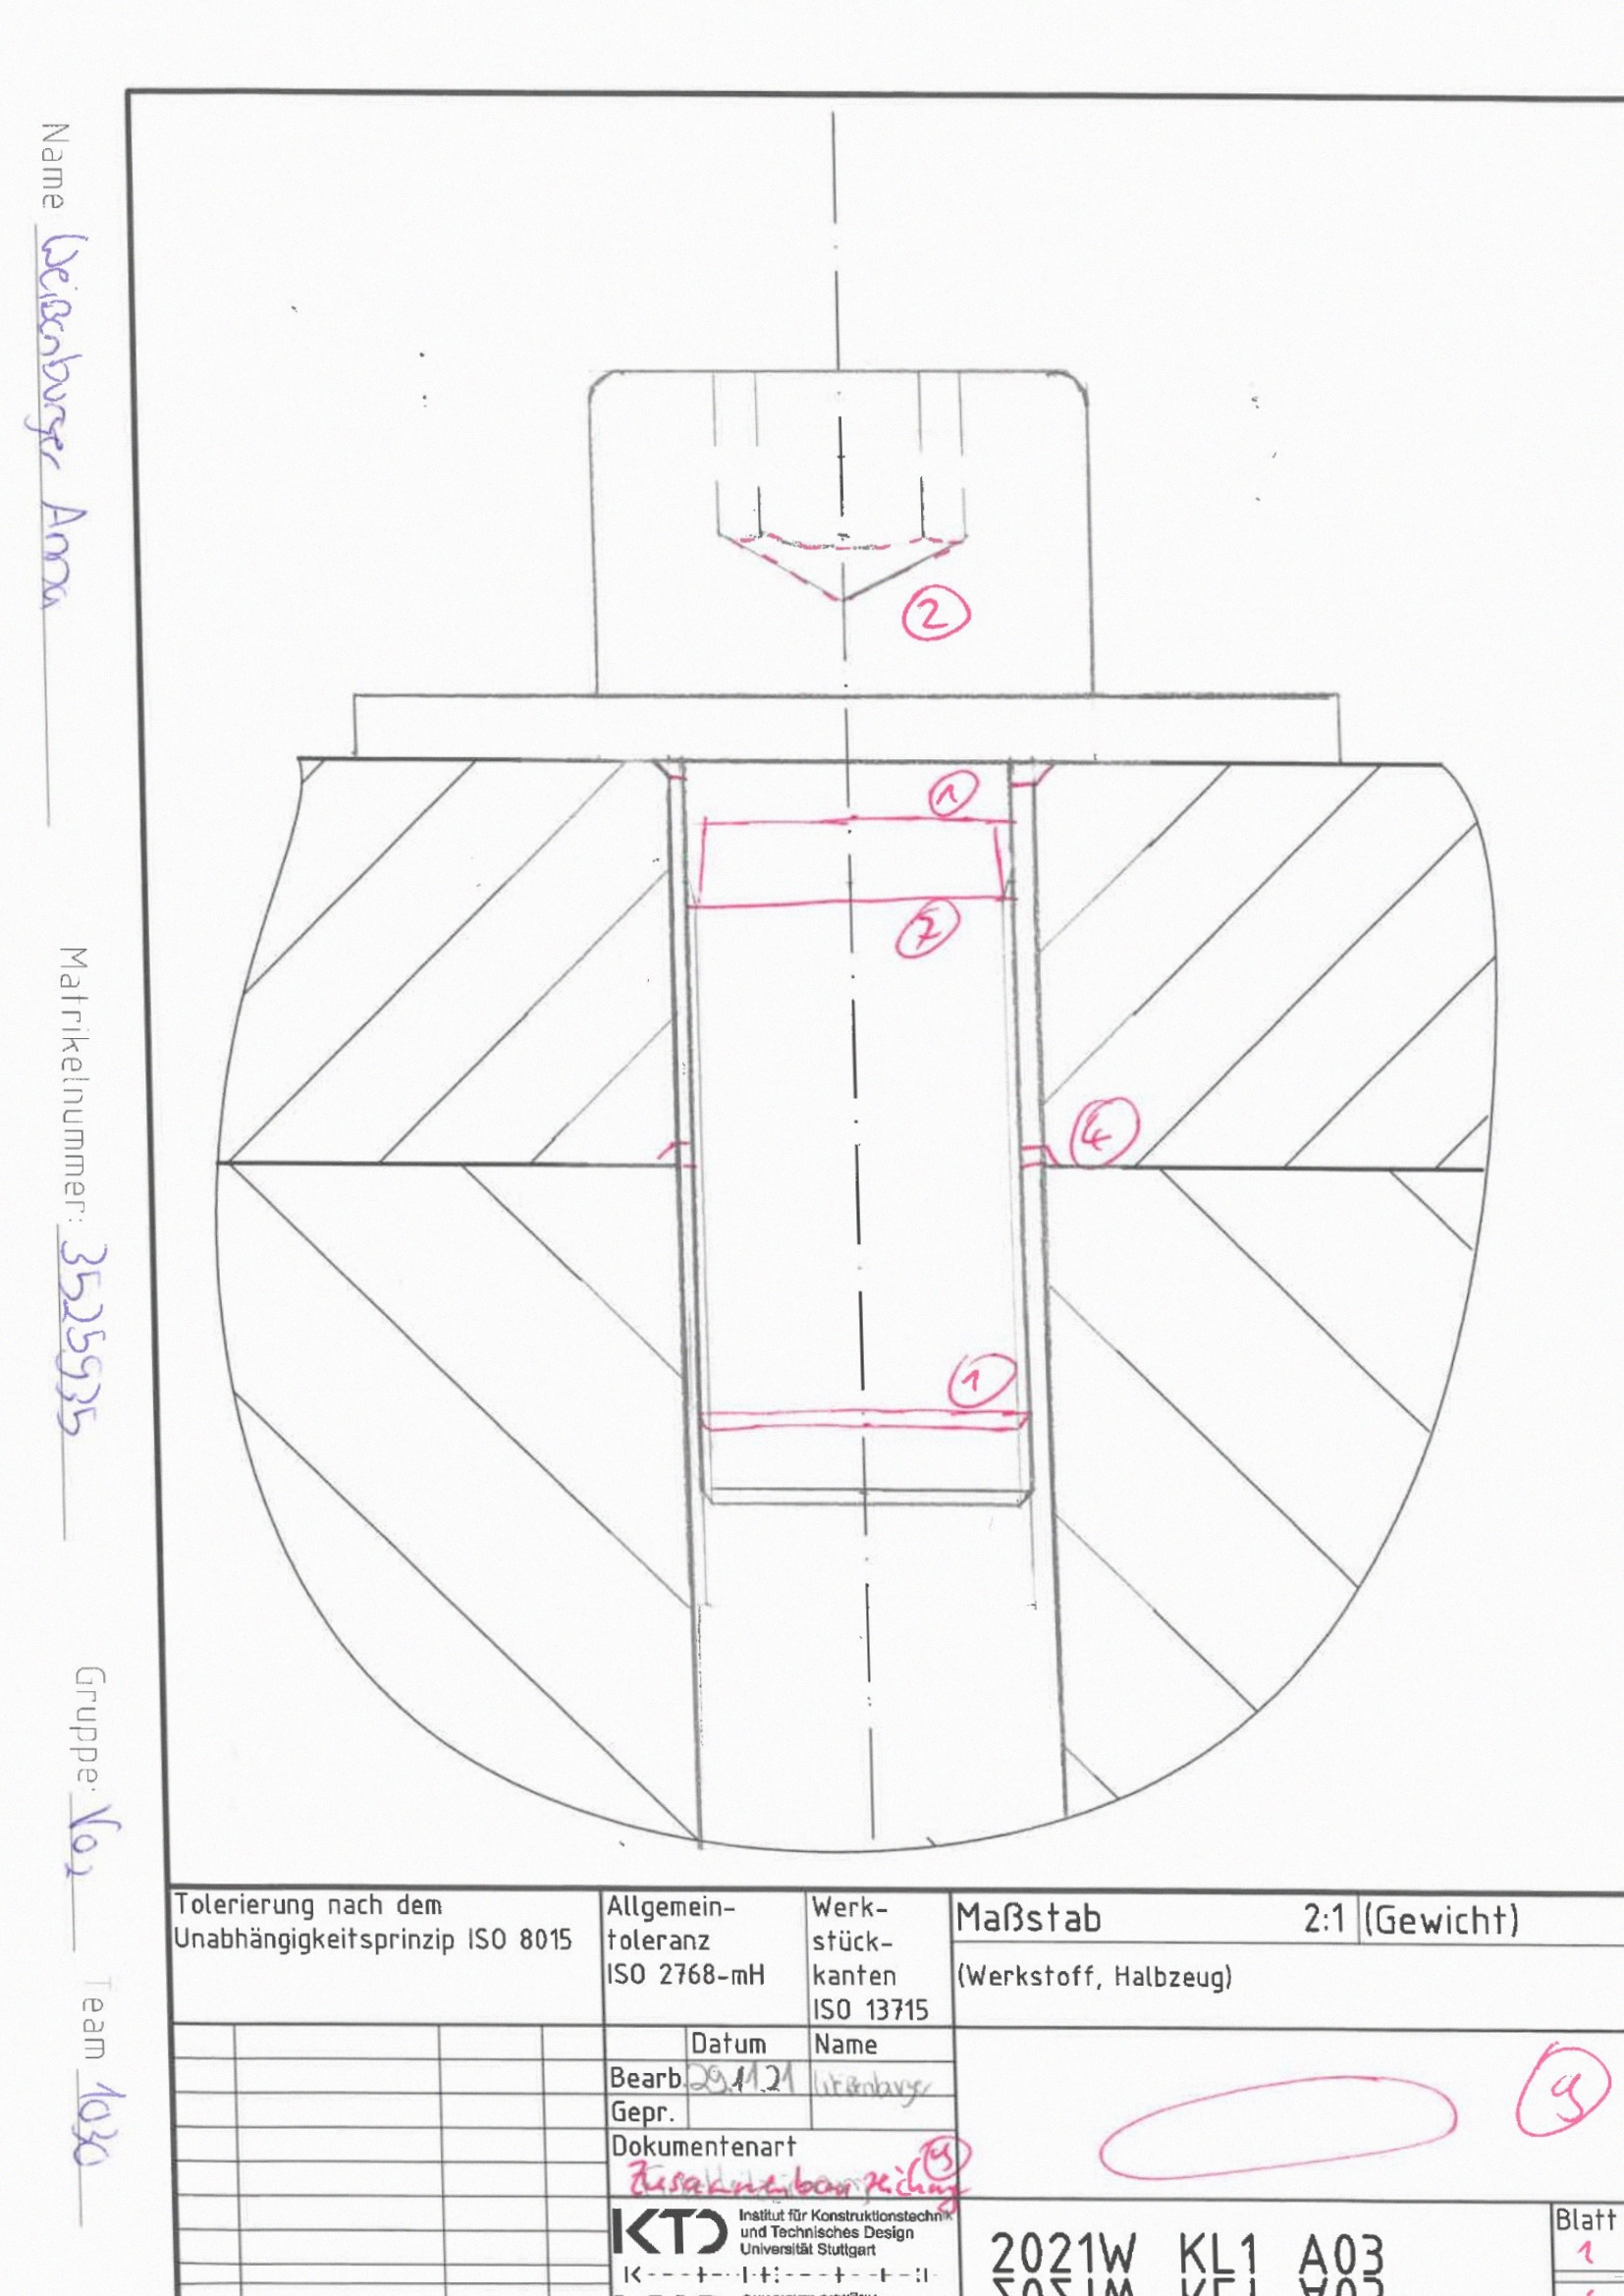 Name Weißenburger Anna
Matrikelnummer: 3525935
Gruppe: V02
Team 1030
2
1
7
4
1
Tolerierung nach dem
Unabhängigkeitsprinzip ISO 8015
Allgemein-
toleranz
ISO 2768-mH
Werk-
stück-
kanten
ISO 13715
Maßstab 2:1 (Gewicht)
(Werkstoff, Halbzeug)
Datum Name
Bearb. 29.11.21 Weißenburger
Gepr.
Dokumentenart
Zusammenbauzeichnung
9
9
KTD
Institut für Konstruktionstechnik
und Technisches Design
Universität Stuttgart
2021W KL1 A03
Blatt
1